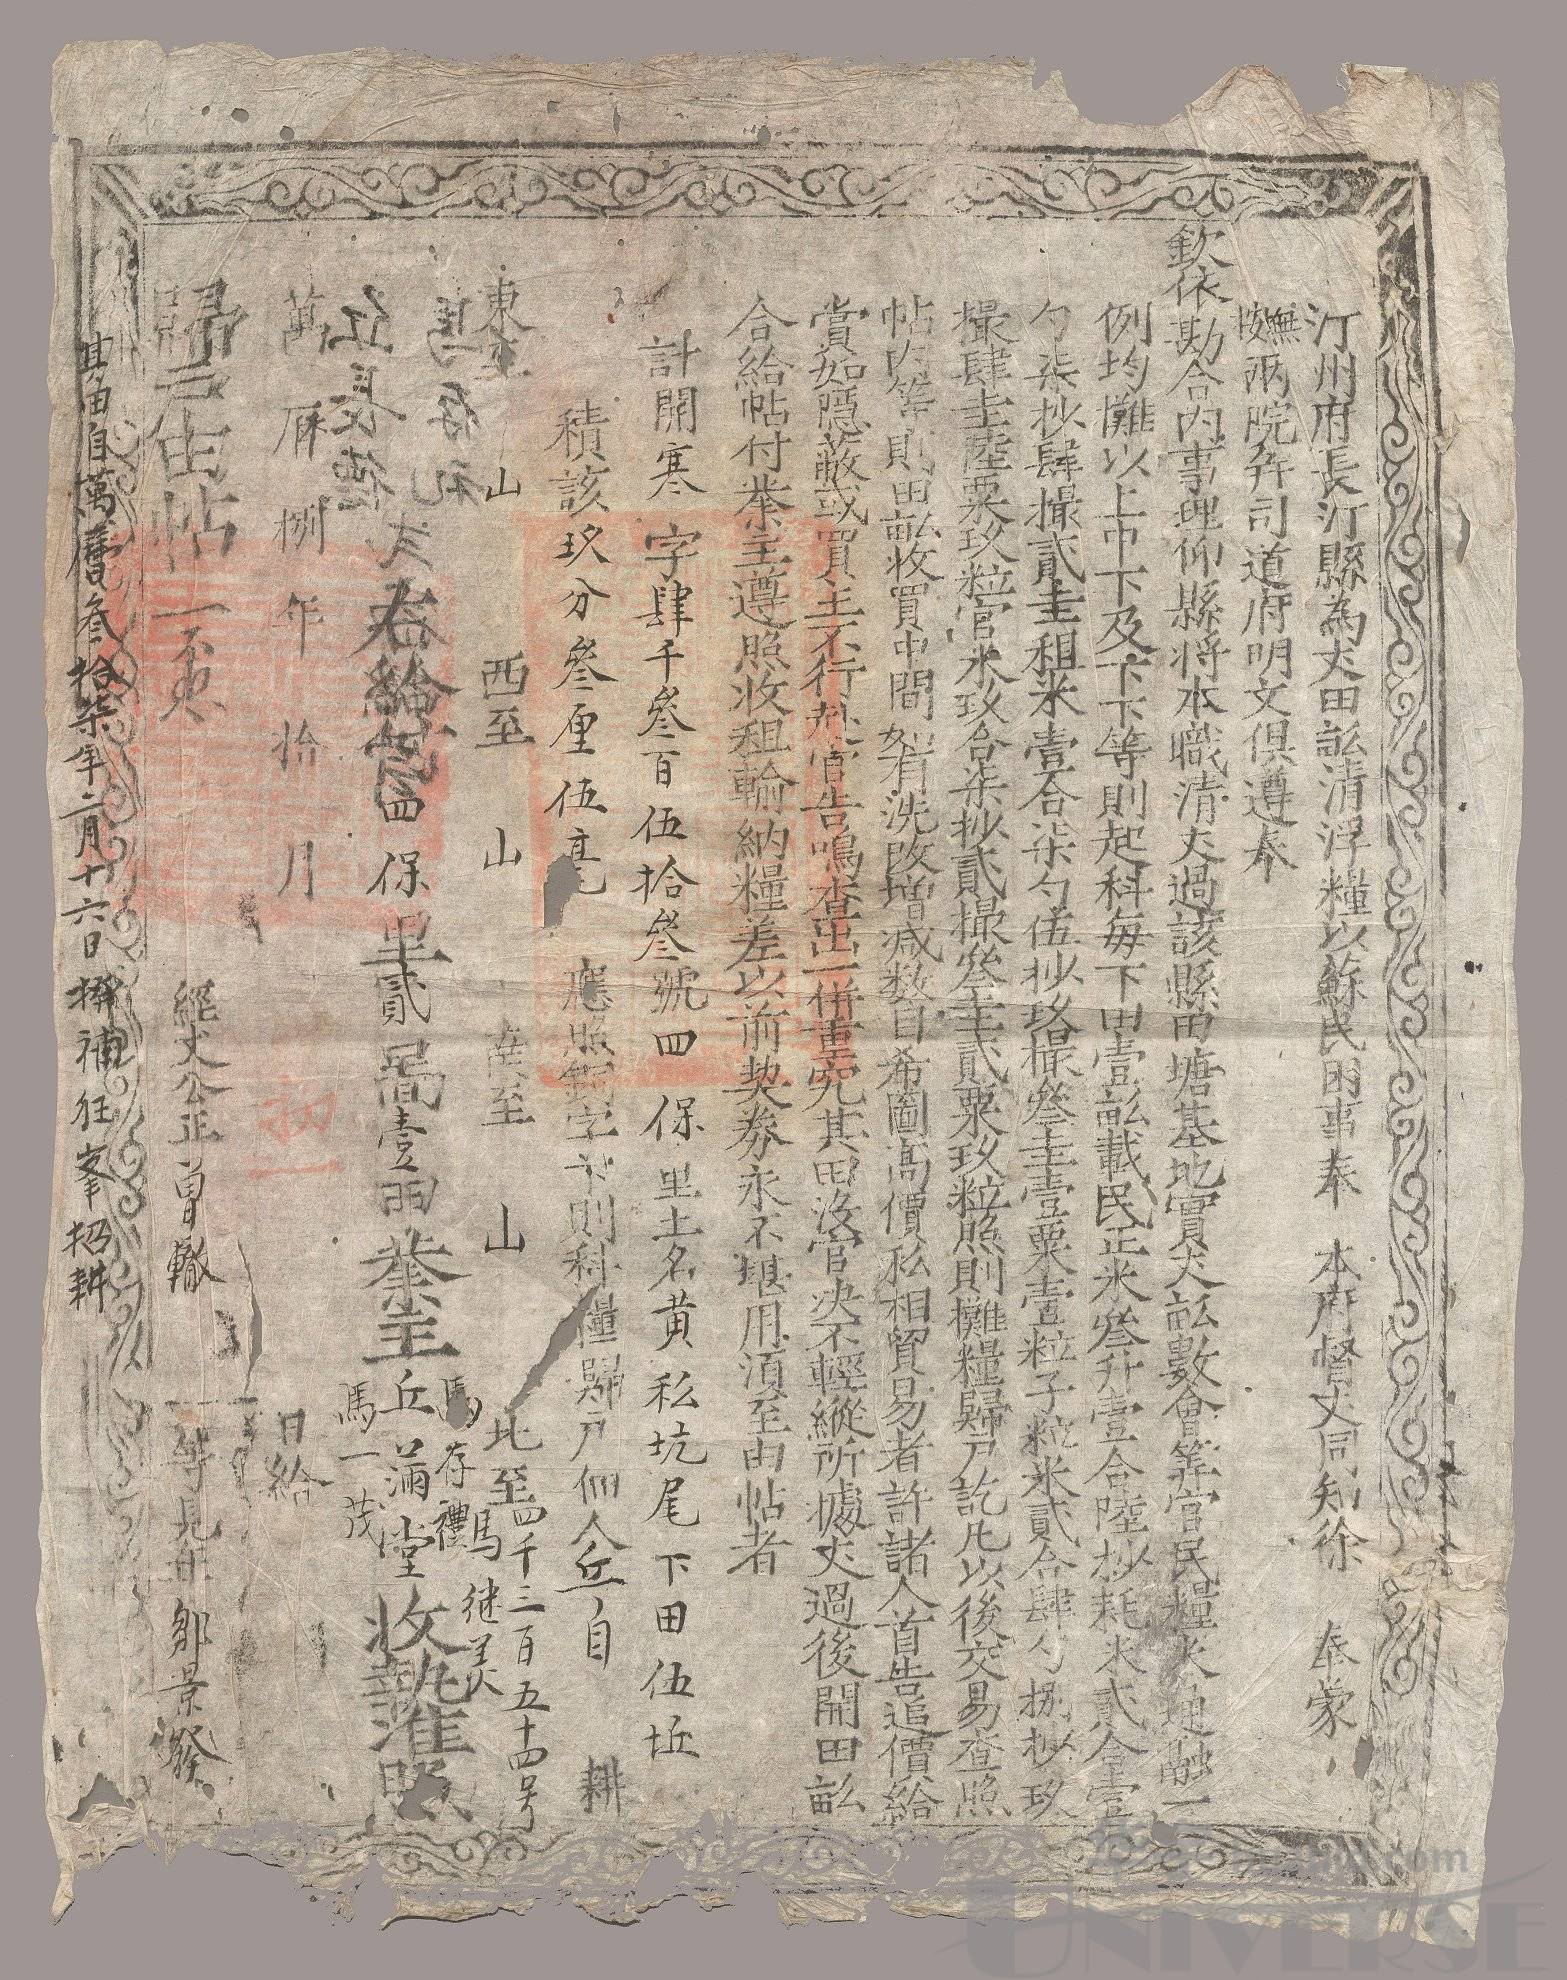 汀州府長汀縣為丈田畝清浮糧以蘇民困事奉 本府督丈同知徐 奉蒙
撫按兩院并司道府明文俱遵奉
欽依勘合內事理仰縣將本職清丈過該縣田塘基地實丈畝數會筭官民糧米通融一
例均攤以上中下及下下等則起科每下田壹畝載民正米叄升壹合陸抄耗米貳合壹
勺柒抄肆撮貳圭租米壹合柒勺伍抄玖撮叄圭壹粟壹粒子粒米貳合肆勺捌抄玖
撮肆圭陸粟玖粒官米玖合柒抄貳撮叄圭貳粟玖粒照則攤糧歸戶訖凡以後交易查照
帖內等則田畝收買中間如有洗改增減数目希圖高價私相貿易者許諸人首告追價給
賞如隱蔽或買主不行赴官告鳴查出一併重究其田沒官决不輕縱所據丈過後開田畝
合給帖付業主遵照收租輪納糧差以前契券永不堪用須至由帖者
計開寒 字肆千叄百伍拾叄號四 保里土名黄私坑尾下田伍坵
積該玖分叄厘伍毫 應照 字下則科糧歸戶佃人丘自 耕
東至 山 西至 山 南至 山 北至四千三百五十四号
馬継美
馬存礼
右給 四保里貳啚壹 業主丘滿堂收執准照
馬存禮
馬一茂
萬曆捌年拾月 初一 日給
歸户由帖
經丈公正曾轍 見年鄒景發
其苗自萬曆叁拾柒年二月十六日撥補 招耕
UNIVERSE